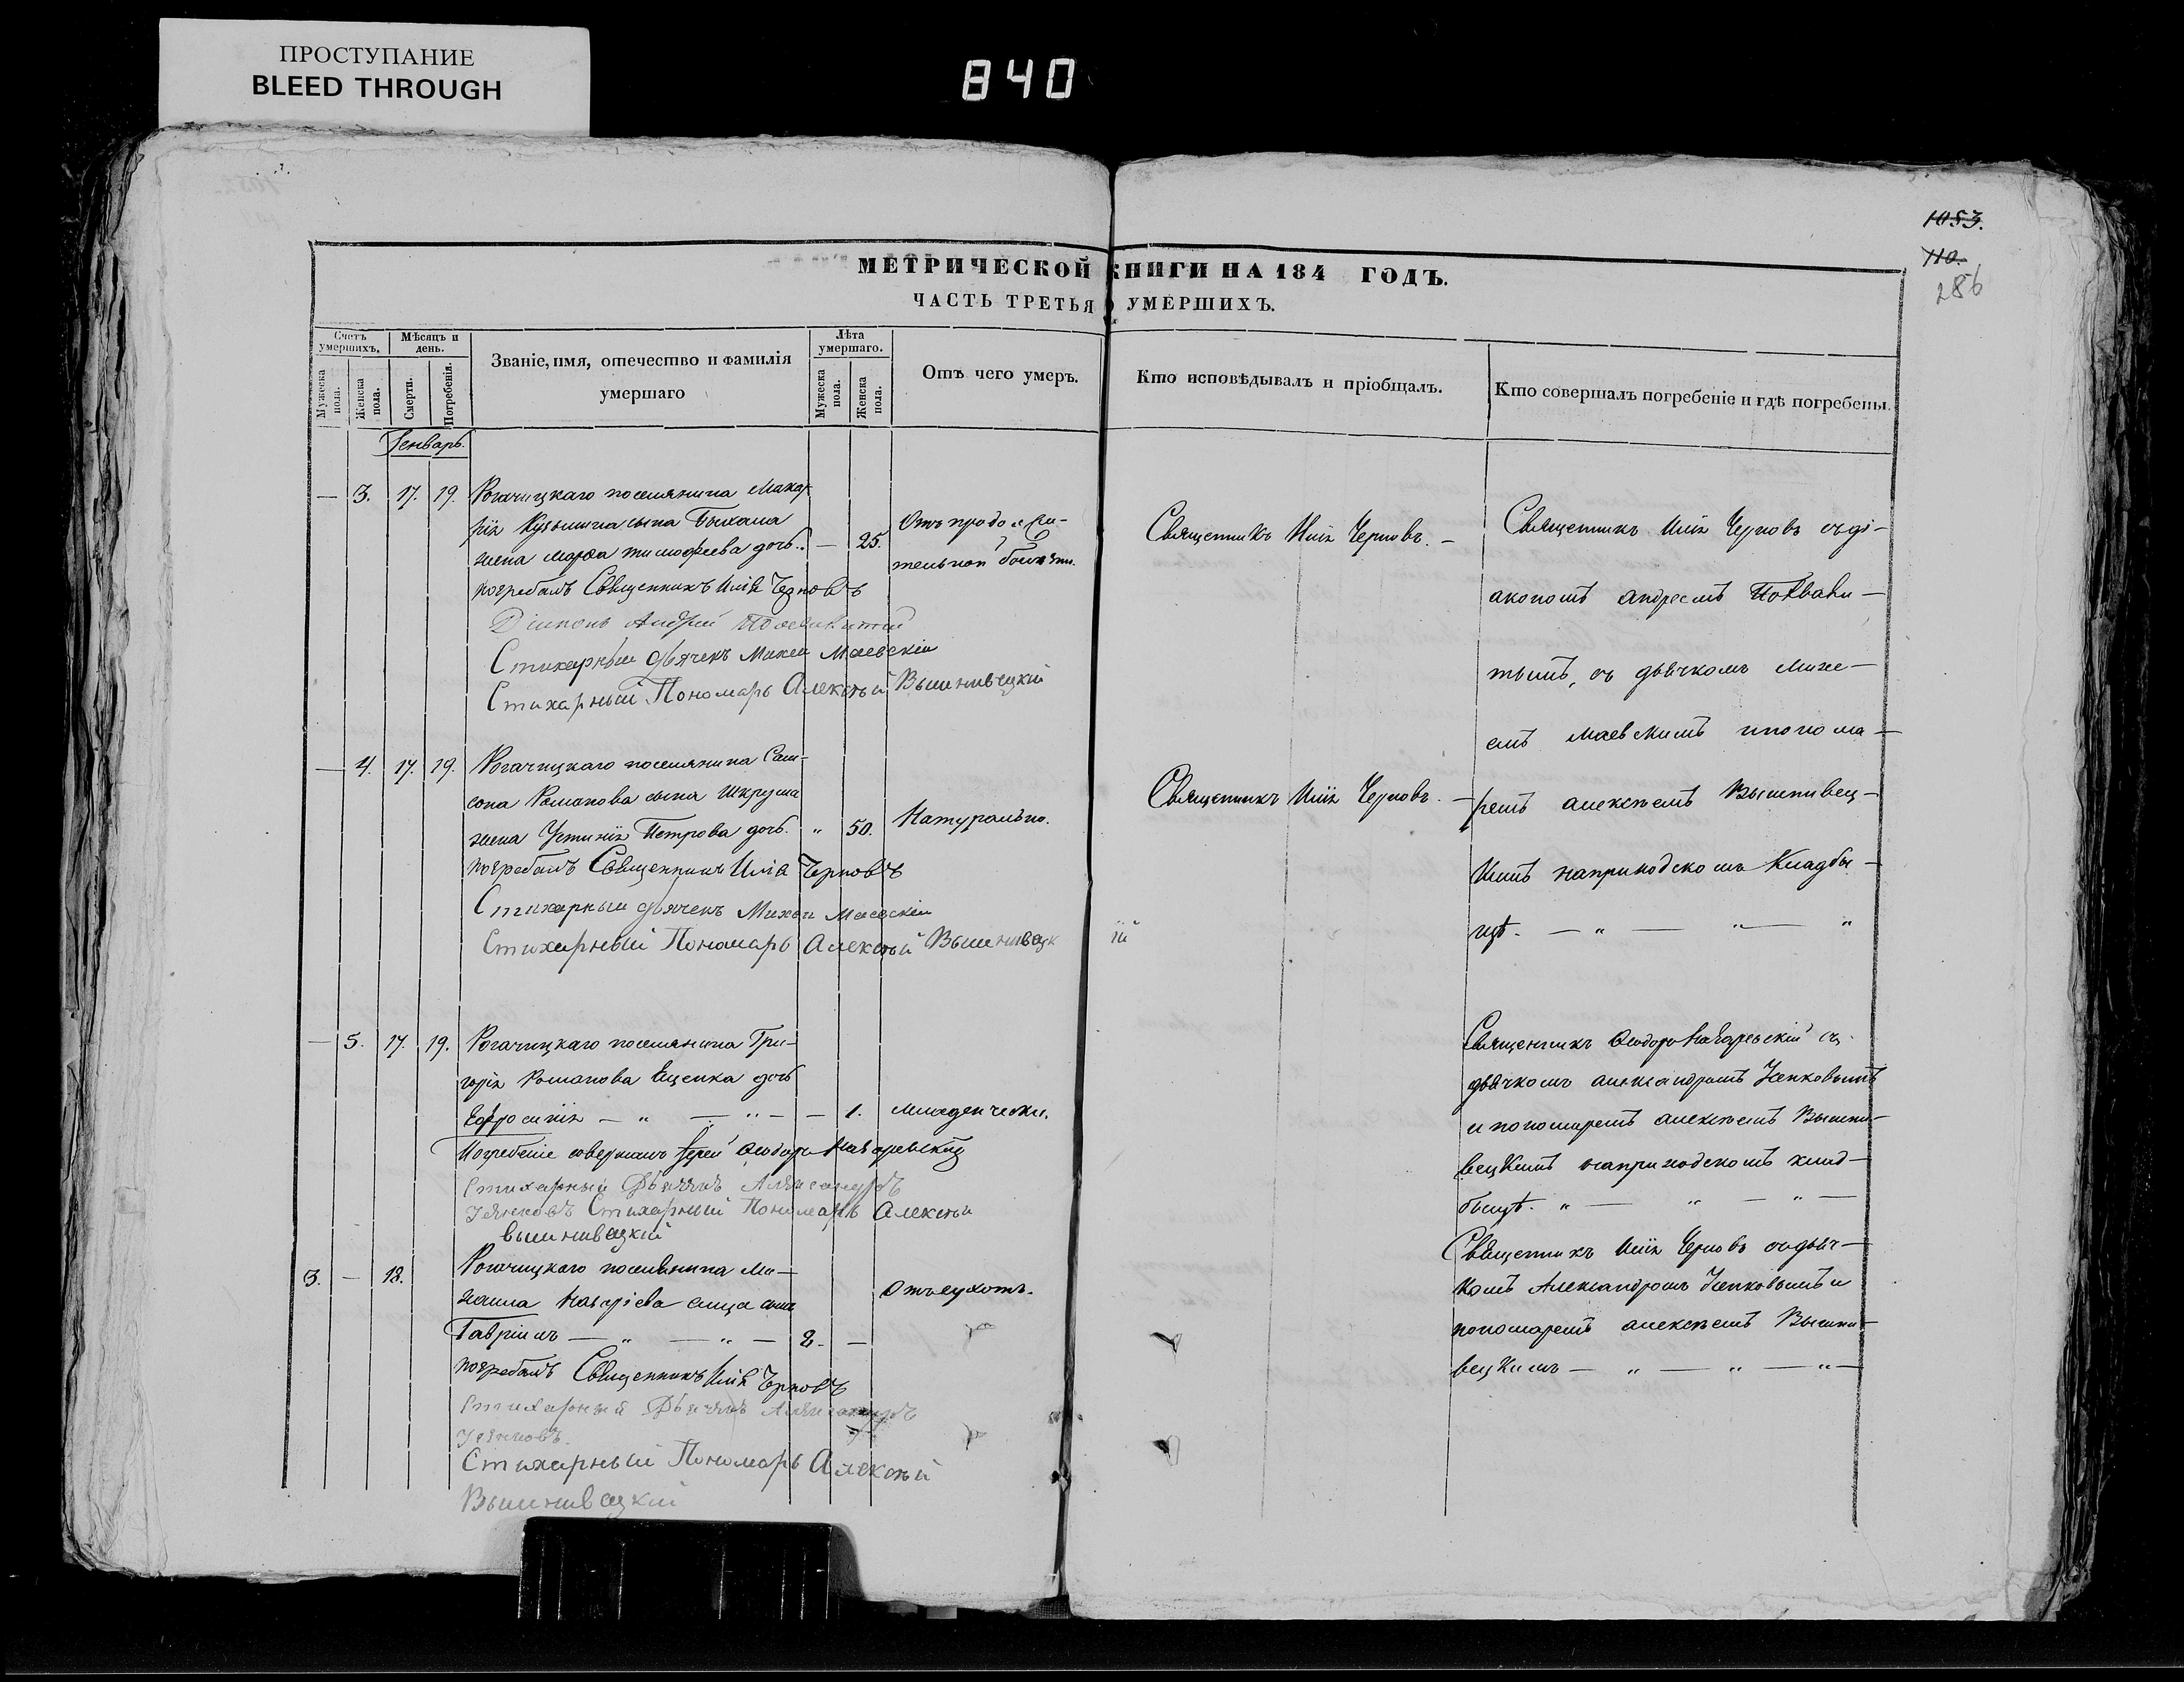 ПРОСТУПАНИЕ
BLEED THROUGH
840
1053.
110.
286
МЕТРИЧЕСКОЙ КНИГИ НА 184 ГОДЪ.
ЧАСТЬ ТРЕТЬЯ О УМЕРШИХЪ.
Счетъ умершихъ.
Мужеска пола.
Женска пола.
Мѣсяцъ и день.
Смерти.
Погребенія.
Званіе, имя, отечество и фамилія
умершаго
Лѣта умершаго.
Мужеска пола.
Женска пола.
Отъ чего умеръ.
Кто исповѣдывалъ и пріобщалъ.
Кто совершалъ погребеніе и гдѣ погребены.
Генварь.
— 3. 17. 19. Рогачицкаго поселянина Мака-
рія Кузьмина сына
жена Марѳа тимофеева дочь. — 25.
Отъ продолжи-
тельной болѣзни.
погребалъ Священникъ Илія Черновъ
Діяконъ Андрей
Стихарный дьячекъ Михей Маевскій
Стихарный Пономарь Алексѣй Вышнивецкій
Священникъ Илія Черновъ. —
Священникъ Илія Черновъ съ ді-
акономъ андреемъ
тымъ, съ дьячкомъ Михе-
емъ маевскимъ и понома-
ремъ алексѣемъ Вышнивец-
кимъ на приходскомъ Кладби-
щѣ. — „ — „ — „
— 4. 17. 19. Рогачицкаго поселянина Сам-
сона Романова сына
жена Устинія Петрова дочь. „ 50. Натурально.
погребалъ Священникъ Илія Черновъ
Стихарный дьячекъ Михей Маевскій
Стихарный Пономарь Алексѣй Вышнивецкій
Священникъ Илія Черновъ. —
— 5. 17. 19. Рогачицкаго поселянина Гри-
горія Романова Ященка дочь
Ефросинія — „ — „ — — 1. Младенчески.
Погребеніе совершалъ Іерей Ѳеодоръ
Стихарный Дьячекъ Александръ
Стихарный Пономарь Алексѣй
Вышнивецкій
Священникъ Ѳеодоръ съ
дьячкомъ александромъ
и пономаремъ алексѣемъ Вышни-
вецкимъ на приходскомъ клад-
бищѣ. „ — „ — „ —
3. — 18. Рогачицкаго поселянина Ми-
хаила Назаріева сына
Гавріилъ — „ — „ — 2. —
Отъ сухотъ.
погребалъ Священникъ Илія Черновъ
Стихарный Дьячекъ Александръ
Стихарный Пономарь Алексѣй
Вышнивецкій
Священникъ Илія Черновъ съ дьяч-
комъ Александромъ и
пономаремъ алексѣемъ Вышни-
вецкимъ — „ — „ — „ —